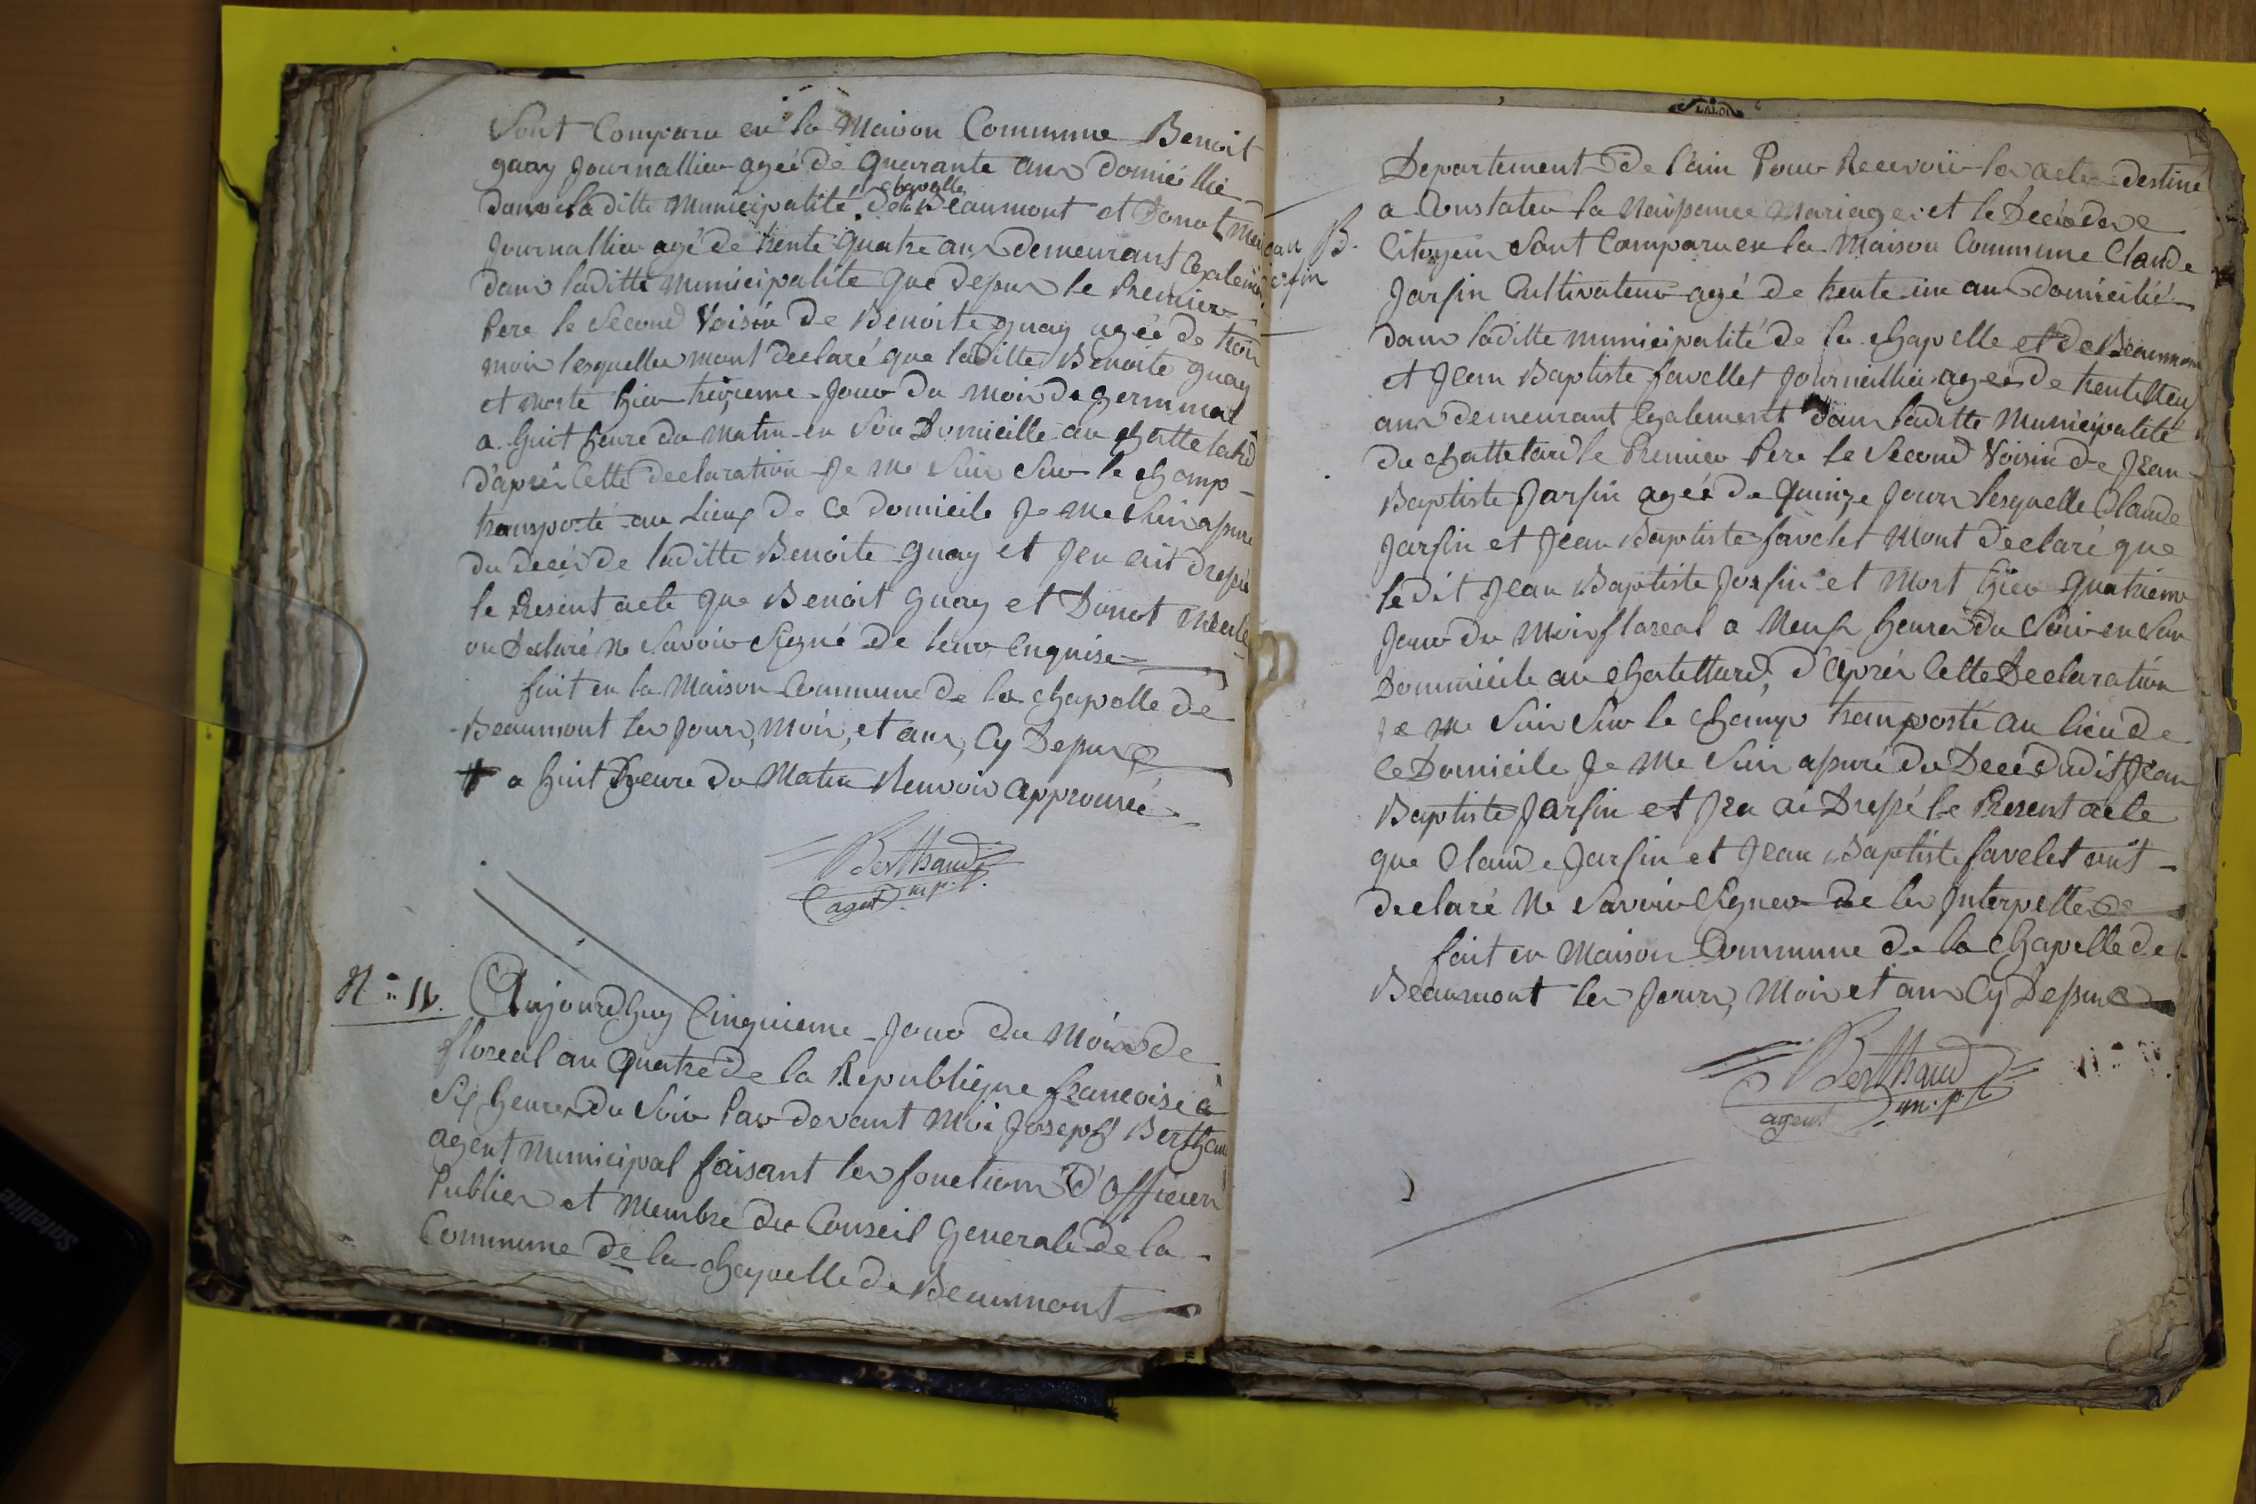 Sont Comparu en la Maison Commune Benoit
guay Journallier ageé de quarante ans domicillié
dans laditte Municipalité de la chapelle Beaumont et Donat
Journallier agé de trente quatre ans demeurant Egalement
dans laditte Municipalite que depus le Premier
Pere le Second Voisin de Benoite guay ageé de trois
mois lesquelles mont declaré que laditte Benoite guay
et morte hier treizieme Jour du mois de germinal
a huit heure du Matin en Son Domicille au Chattelard
d'aprés Cette declaration Je me Suis Sur le champ
transporté au Lieux de Ce domicile Je me Suis assuré
du deces de laditte Benoite guay et Jen ait dressé
le Present acte que Benoit guay et Donat
on Declaré Ne Savoir Signé de leur Enquise
fait en la Maison Commune de la chapelle de
Beaumont les Jours, Mois, et ans, Cy Depus
a huit heure du Matin Renvoir approuvéé
Berthaud
agent m.p.l.
N.o 11. Aujourdhuy Cinquieme Jour du Mois de
floreal an Quatre de la Republique francoise à
Six heures du Soir Par devant Moi Joseph Berthaud
agent Municipal faisant les fonctions d'officiers
Publics et Membre du Conseil generale de la
Commune de la chapelle de Beaumont
Jean B.
Jarfin
Departement de l'ain Pour Recevoir les actes destiné
a Constater la Naissance Mariages et le Décés des
Citoyens Sont Comparu en la Maison Commune Claude
Jarfin Cultivateur agé de trente un ans domicilié
dans laditte municipalité de la chapelle et de Beaumont
et Jean Baptiste favellet Journeillier ageé de trente Neuf
ans demeurant Egalement dans laditte Municipalité
du chattelard le Premier Pere le Second Voisin de Jean
Baptiste Jarfin ageé de Quinze Jours lesquelle Claude
Jarfin et Jean Baptiste favelet Mont declaré que
ledit Jean Baptiste Jarfin et Mort hier quatrieme
Jour du Mois floreal a Neuf heures du Soir en Son
Dommicile au chatellard, d'aprés Cette Declaration
Je me Suis Sur le champ transporté au lieu de
Ce Domicile Je Me Suis assuré du Decés dudit Jean
Baptiste Jarfin et Jen ai Dressé le Present acte
que Claude Jarfin et Jean Baptiste favelet ont
declaré Ne Savoir Signer de les Interpelle
fait en Maison Commune de la chapelle de
Beaumont les Jours, Mois et ans Cy Depus
Berthaud
agent m.p.l.